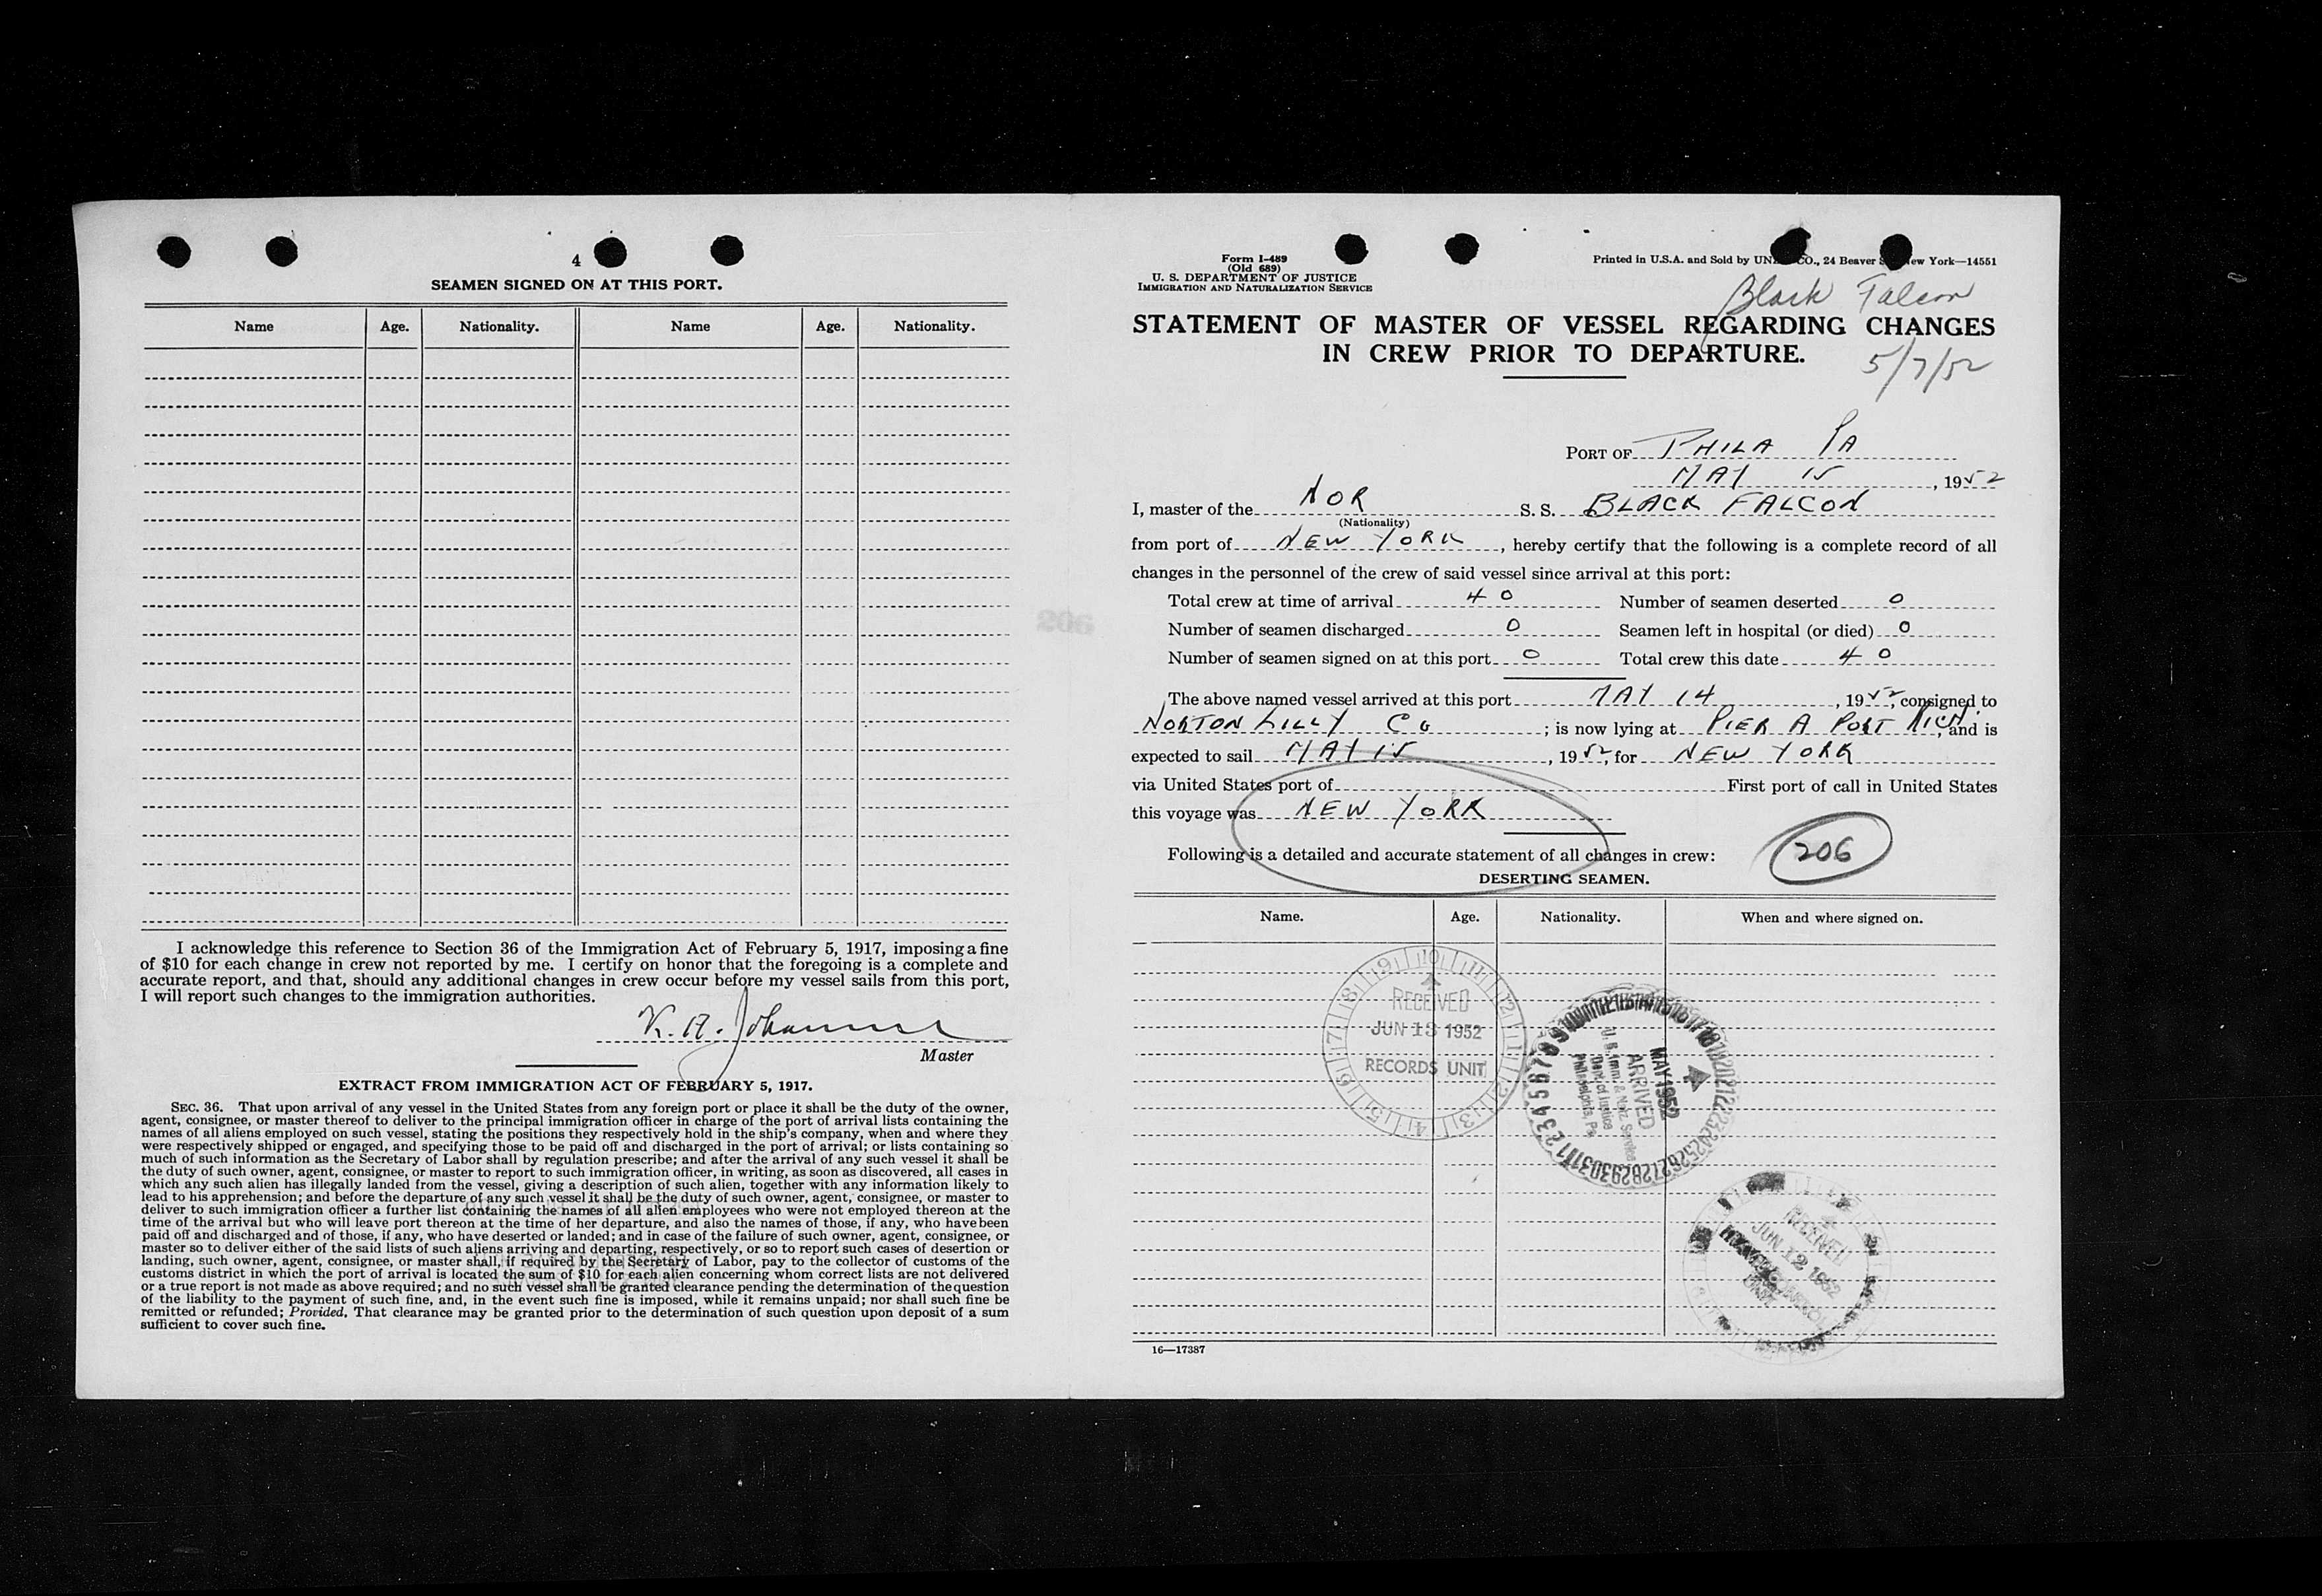 4
SEAMEN SIGNED ON AT THIS PORT.
Name Age. Nationality. Name Age. Nationality.
I acknowledge this reference to Section 36 of the Immigration Act of February 5, 1917, imposing a fine
of $10 for each change in crew not reported by me. I certify on honor that the foregoing is a complete and
accurate report, and that, should any additional changes in crew occur before my vessel sails from this port,
I will report such changes to the immigration authorities.
K. A.
Master
EXTRACT FROM IMMIGRATION ACT OF FEBRUARY 5, 1917.
SEC. 36. That upon arrival of any vessel in the United States from any foreign port or place it shall be the duty of the owner,
agent, consignee, or master thereof to deliver to the principal immigration officer in charge of the port of arrival lists containing the
names of all aliens employed on such vessel, stating the positions they respectively hold in the ship's company, when and where they
were respectively shipped or engaged, and specifying those to be paid off and discharged in the port of arrival; or lists containing so
much of such information as the Secretary of Labor shall by regulation prescribe; and after the arrival of any such vessel it shall be
the duty of such owner, agent, consignee, or master to report to such immigration officer, in writing, as soon as discovered, all cases in
which any such alien has illegally landed from the vessel, giving a description of such alien, together with any information likely to
lead to his apprehension; and before the departure of any such vessel it shall be the duty of such owner, agent, consignee, or master to
deliver to such immigration officer a further list containing the names of all alien employees who were not employed thereon at the
time of the arrival but who will leave port thereon at the time of her departure, and also the names of those, if any, who have been
paid off and discharged and of those, if any, who have deserted or landed; and in case of the failure of such owner, agent, consignee, or
master so to deliver either of the said lists of such aliens arriving and departing, respectively, or so to report such cases of desertion or
landing, such owner, agent, consignee, or master shall, if required by the Secretary of Labor, pay to the collector of customs of the
customs district in which the port of arrival is located the sum of $10 for each alien concerning whom correct lists are not delivered
or a true report is not made as above required; and no such vessel shall be granted clearance pending the determination of the question
of the liability to the payment of such fine, and, in the event such fine is imposed, while it remains unpaid; nor shall such fine be
remitted or refunded; Provided, That clearance may be granted prior to the determination of such question upon deposit of a sum
sufficient to cover such fine.
Form I-489
(Old 689)
U. S. DEPARTMENT OF JUSTICE
IMMIGRATION AND NATURALIZATION SERVICE
Printed in U.S.A. and Sold by CO., 24 Beaver New York—14551
Black Falcon
STATEMENT OF MASTER OF VESSEL REGARDING CHANGES
IN CREW PRIOR TO DEPARTURE.
5/7/52
PORT OF PHILA PA
MAY 15, 1952
I, master of the NOR S. S. BLACK FALCON
(Nationality)
from port of NEW YORK, hereby certify that the following is a complete record of all
changes in the personnel of the crew of said vessel since arrival at this port:
Total crew at time of arrival 40 Number of seamen deserted 0
Number of seamen discharged 0 Seamen left in hospital (or died) 0
Number of seamen signed on at this port 0 Total crew this date 40
The above named vessel arrived at this port MAY 14, 1952, consigned to
NORTON LILLY CO; is now lying at PIER A PORT RICH, and is
expected to sail MAY 15, 1952, for NEW YORK
via United States port of First port of call in United States
this voyage was NEW YORK
Following is a detailed and accurate statement of all changes in crew:
206
DESERTING SEAMEN.
Name. Age. Nationality. When and where signed on.
RECEIVED
JUN 13 1952
RECORDS UNIT
MAY 1952
ARRIVED
U. S. Imm. & Natz. Service
Dept. of Justice
Philadelphia, Pa.
RECEIVED
JUN 12 1952
UNIT
16—17387